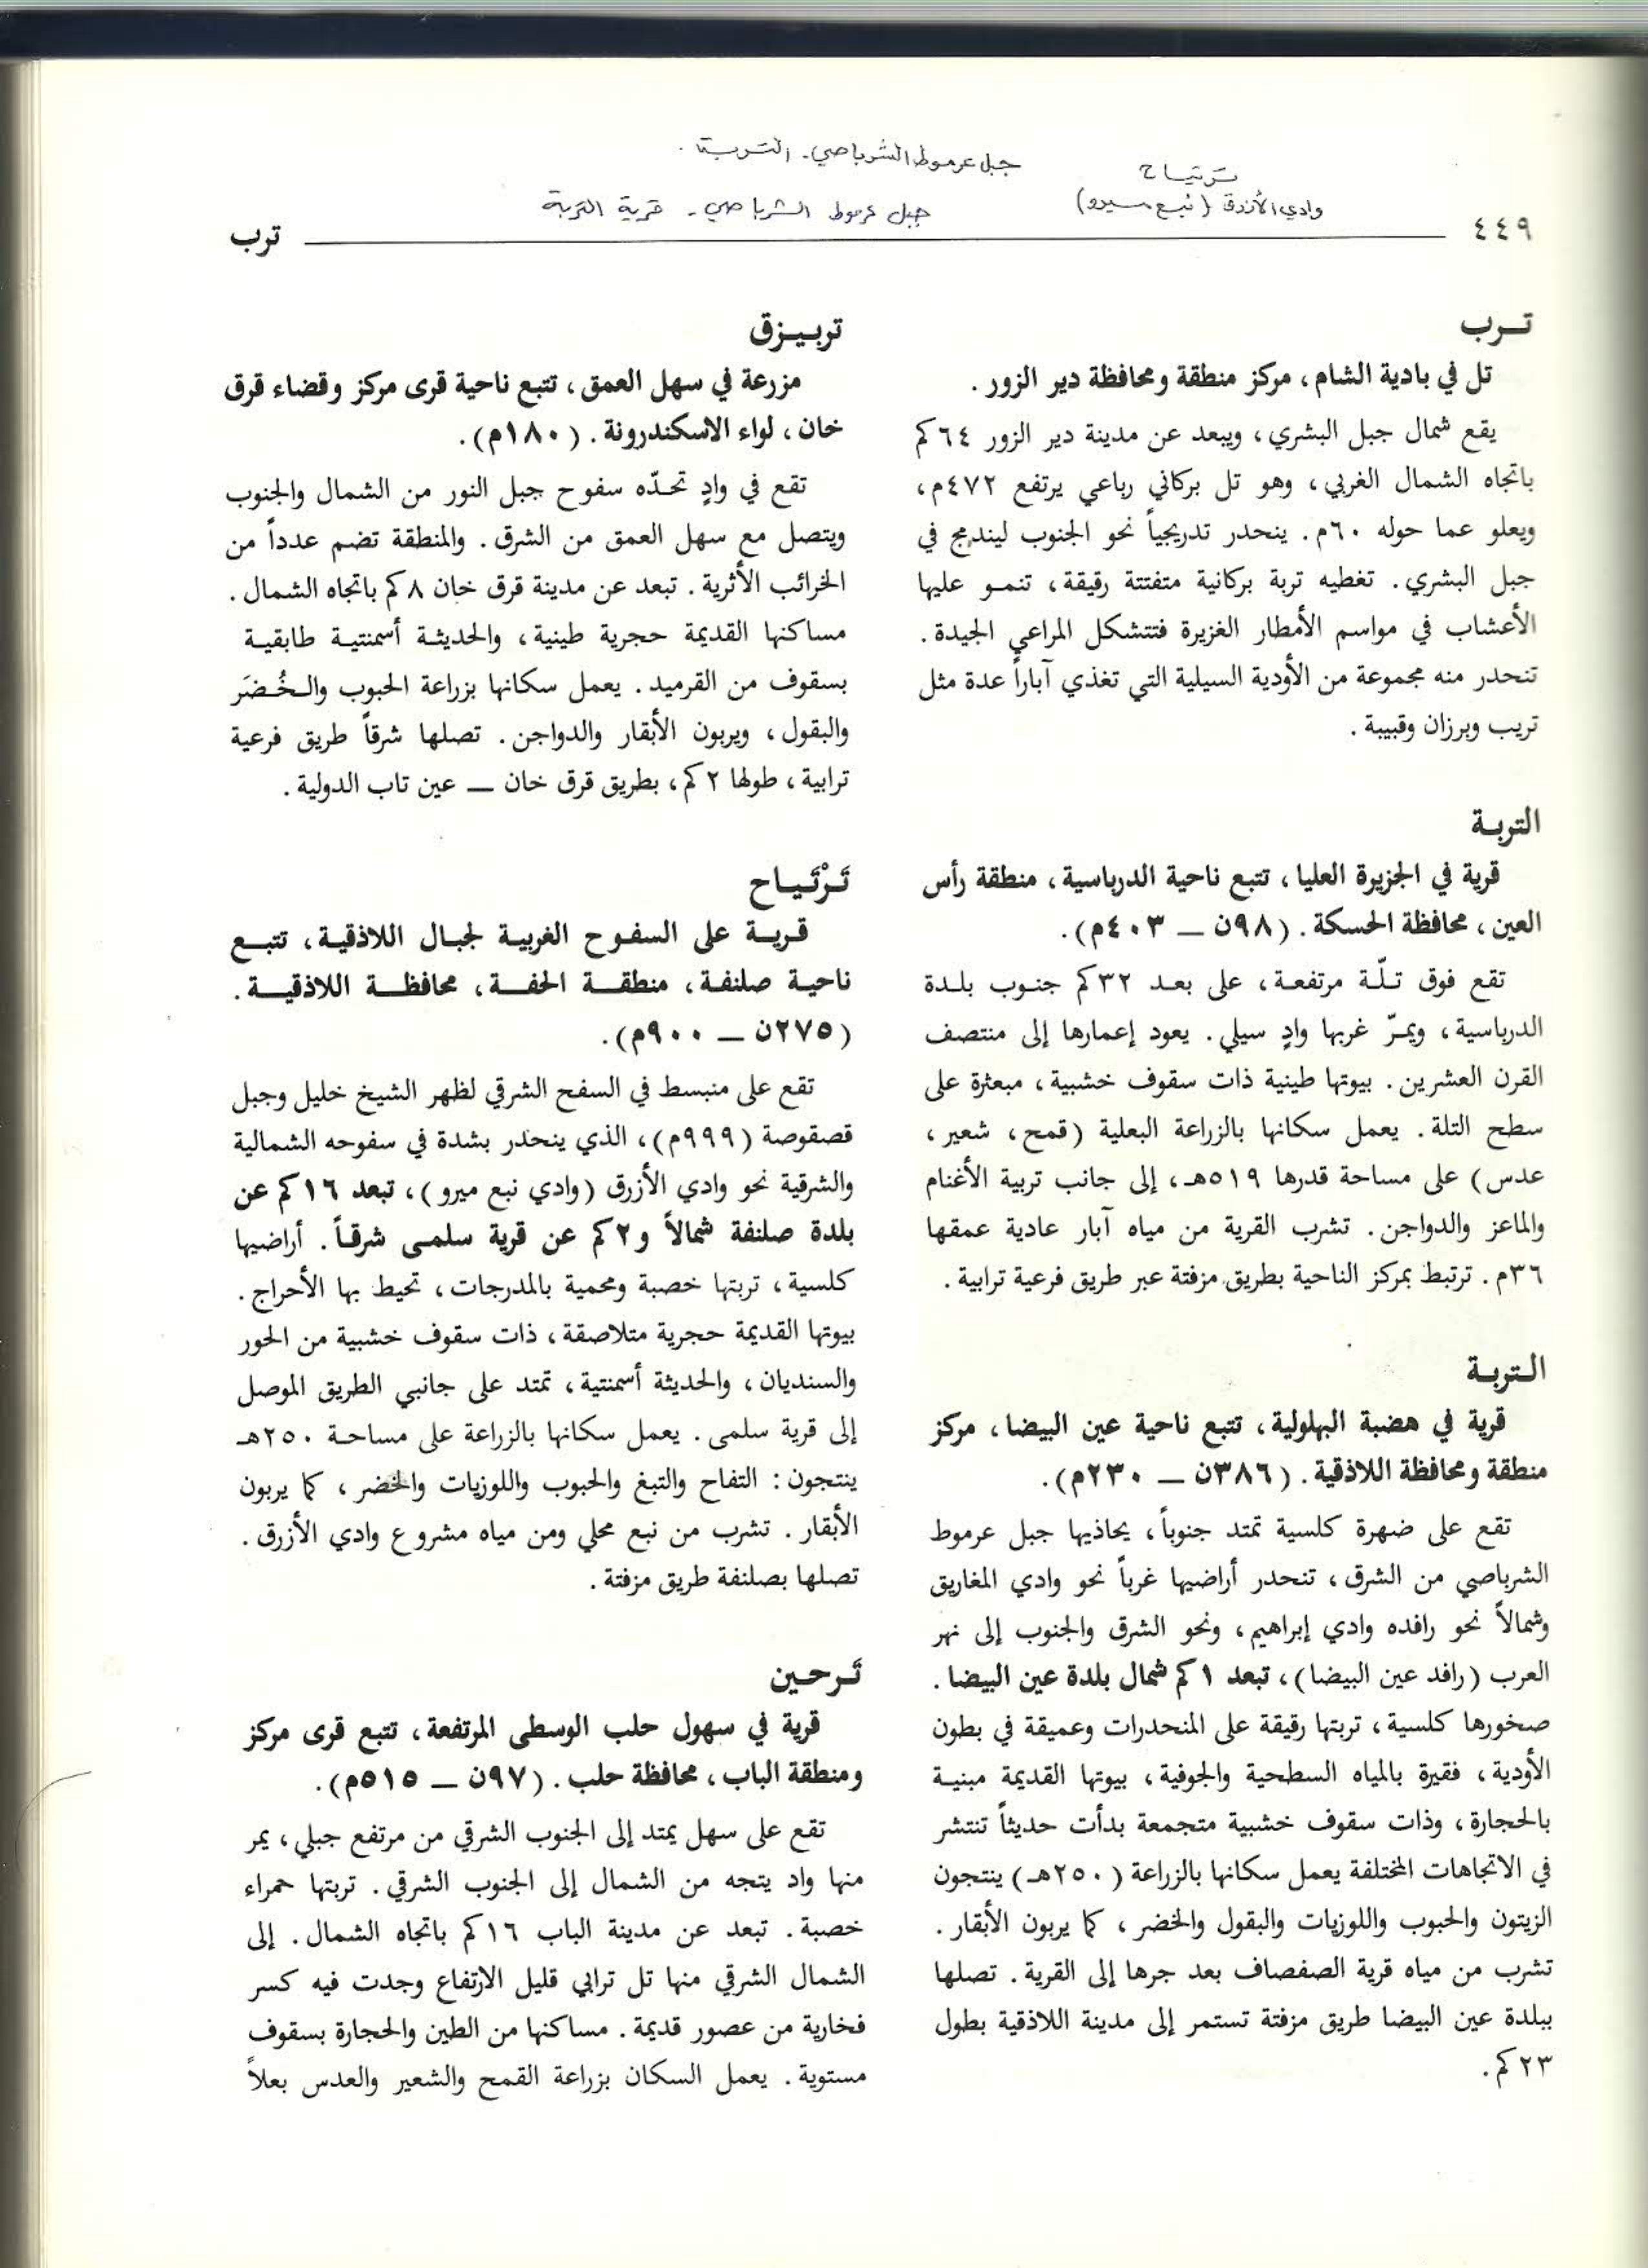 ترتياح
جبل عرموط الشرباصي - التربة .
وادي الأزرق (نبع ميرو)
جبل عرموط الشرباصي - قرية التربة
٤٤٩
ترب
تــرب
تل في بادية الشام ، مركز منطقة ومحافظة دير الزور .
يقع شمال جبل البشري ، ويبعد عن مدينة دير الزور ٦٤ كم
باتجاه الشمال الغربي ، وهو تل بركاني رباعي يرتفع ٤٧٢م ،
ويعلو عما حوله ٦٠م . ينحدر تدريجياً نحو الجنوب ليندمج في
جبل البشري . تغطيه تربة بركانية متفتتة رقيقة ، تنمو عليها
الأعشاب في مواسم الأمطار الغزيرة فتتشكل المراعي الجيدة .
تنحدر منه مجموعة من الأودية السيلية التي تغذي آباراً عدة مثل
تريب وبرزان وقبيبة .
التربة
قرية في الجزيرة العليا ، تتبع ناحية الدرباسية ، منطقة رأس
العين ، محافظة الحسكة . (٩٨ن — ٤٠٣م) .
تقع فوق تلّة مرتفعة ، على بعد ٣٢ كم جنوب بلدة
الدرباسية ، ويمرّ غربها وادٍ سيلي . يعود إعمارها إلى منتصف
القرن العشرين . بيوتها طينية ذات سقوف خشبية ، مبعثرة على
سطح التلة . يعمل سكانها بالزراعة البعلية (قمح ، شعير ،
عدس) على مساحة قدرها ٥١٩هـ ، إلى جانب تربية الأغنام
والماعز والدواجن . تشرب القرية من مياه آبار عادية عمقها
٣٦م . ترتبط بمركز الناحية بطريق مزفتة عبر طريق فرعية ترابية .
التربة
قرية في هضبة البهلولية ، تتبع ناحية عين البيضا ، مركز
منطقة ومحافظة اللاذقية . (٣٨٦ن — ٢٣٠م) .
تقع على ضهرة كلسية تمتد جنوباً ، يحاذيها جبل عرموط
الشرباصي من الشرق ، تنحدر أراضيها غرباً نحو وادي المغاريق
وشمالاً نحو رافده وادي إبراهيم ، ونحو الشرق والجنوب إلى نهر
العرب (رافد عين البيضا) ، تبعد ١ كم شمال بلدة عين البيضا .
صخورها كلسية ، تربتها رقيقة على المنحدرات وعميقة في بطون
الأودية ، فقيرة بالمياه السطحية والجوفية ، بيوتها القديمة مبنية
بالحجارة ، وذات سقوف خشبية متجمعة بدأت حديثاً تنتشر
في الاتجاهات المختلفة يعمل سكانها بالزراعة (٢٥٠هـ) ينتجون
الزيتون والحبوب واللوزيات والبقول والخضر ، كما يربون الأبقار .
تشرب من مياه قرية الصفصاف بعد جرها إلى القرية . تصلها
ببلدة عين البيضا طريق مزفتة تستمر إلى مدينة اللاذقية بطول
٢٣ كم .
تربيـزق
مزرعة في سهل العمق ، تتبع ناحية قرى مركز وقضاء قرق
خان ، لواء الاسكندرونة . (١٨٠م) .
تقع في وادٍ تحدّه سفوح جبل النور من الشمال والجنوب
ويتصل مع سهل العمق من الشرق . والمنطقة تضم عدداً من
الخرائب الأثرية . تبعد عن مدينة قرق خان ٨ كم باتجاه الشمال .
مساكنها القديمة حجرية طينية ، والحديثة أسمنتية طابقية
بسقوف من القرميد . يعمل سكانها بزراعة الحبوب والخُضَر
والبقول ، ويربون الأبقار والدواجن . تصلها شرقاً طريق فرعية
ترابية ، طولها ٢ كم ، بطريق قرق خان — عين تاب الدولية .
تَرْتَياح
قرية على السفوح الغربية لجبال اللاذقية ، تتبع
ناحية صلنفة ، منطقة الحفة ، محافظة اللاذقية .
(٢٧٥ن — ٩٠٠م) .
تقع على منبسط في السفح الشرقي لظهر الشيخ خليل وجبل
قصقوصة (٩٩٩م) ، الذي ينحدر بشدة في سفوحه الشمالية
والشرقية نحو وادي الأزرق (وادي نبع ميرو) ، تبعد ١٦ كم عن
بلدة صلنفة شمالاً و٢ كم عن قرية سلمى شرقاً . أراضيها
كلسية ، تربتها خصبة ومحمية بالمدرجات ، تحيط بها الأحراج .
بيوتها القديمة حجرية متلاصقة ، ذات سقوف خشبية من الحور
والسنديان ، والحديثة أسمنتية ، تمتد على جانبي الطريق الموصل
إلى قرية سلمى . يعمل سكانها بالزراعة على مساحة ٢٥٠هـ
ينتجون : التفاح والتبغ والحبوب واللوزيات والخضر ، كما يربون
الأبقار . تشرب من نبع محلي ومن مياه مشروع وادي الأزرق .
تصلها بصلنفة طريق مزفتة .
تَـرحـين
قرية في سهول حلب الوسطى المرتفعة ، تتبع قرى مركز
ومنطقة الباب ، محافظة حلب . (٩٧ن — ٥١٥م) .
تقع على سهل يمتد إلى الجنوب الشرقي من مرتفع جبلي ، يمر
منها واد يتجه من الشمال إلى الجنوب الشرقي . تربتها حمراء
خصبة . تبعد عن مدينة الباب ١٦ كم باتجاه الشمال . إلى
الشمال الشرقي منها تل ترابي قليل الارتفاع وجدت فيه كسر
فخارية من عصور قديمة . مساكنها من الطين والحجارة بسقوف
مستوية . يعمل السكان بزراعة القمح والشعير والعدس بعلاً